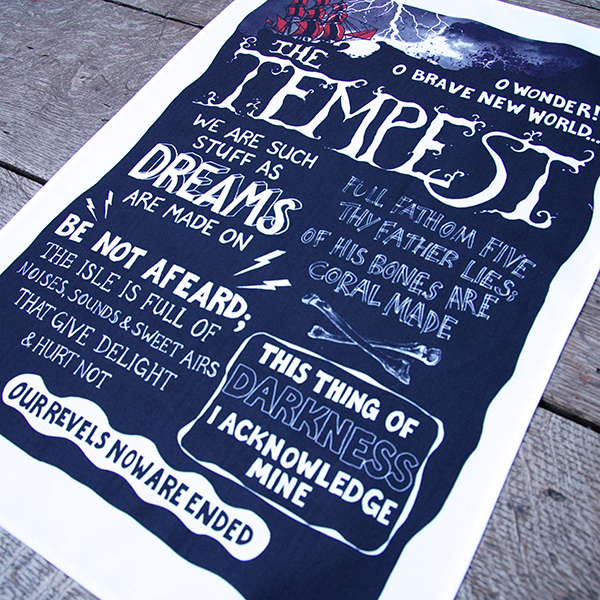 THE
TEMPEST
O WONDER!
O BRAVE NEW WORLD...
WE ARE SUCH
STUFF AS
DREAMS
ARE MADE ON
FULL FATHOM FIVE
THY FATHER LIES;
OF HIS BONES ARE
CORAL MADE
BE NOT AFEARD;
THE ISLE IS FULL OF
NOISES, SOUNDS & SWEET AIRS
THAT GIVE DELIGHT
& HURT NOT
THIS THING OF
DARKNESS
I ACKNOWLEDGE
MINE
OUR REVELS NOW ARE ENDED